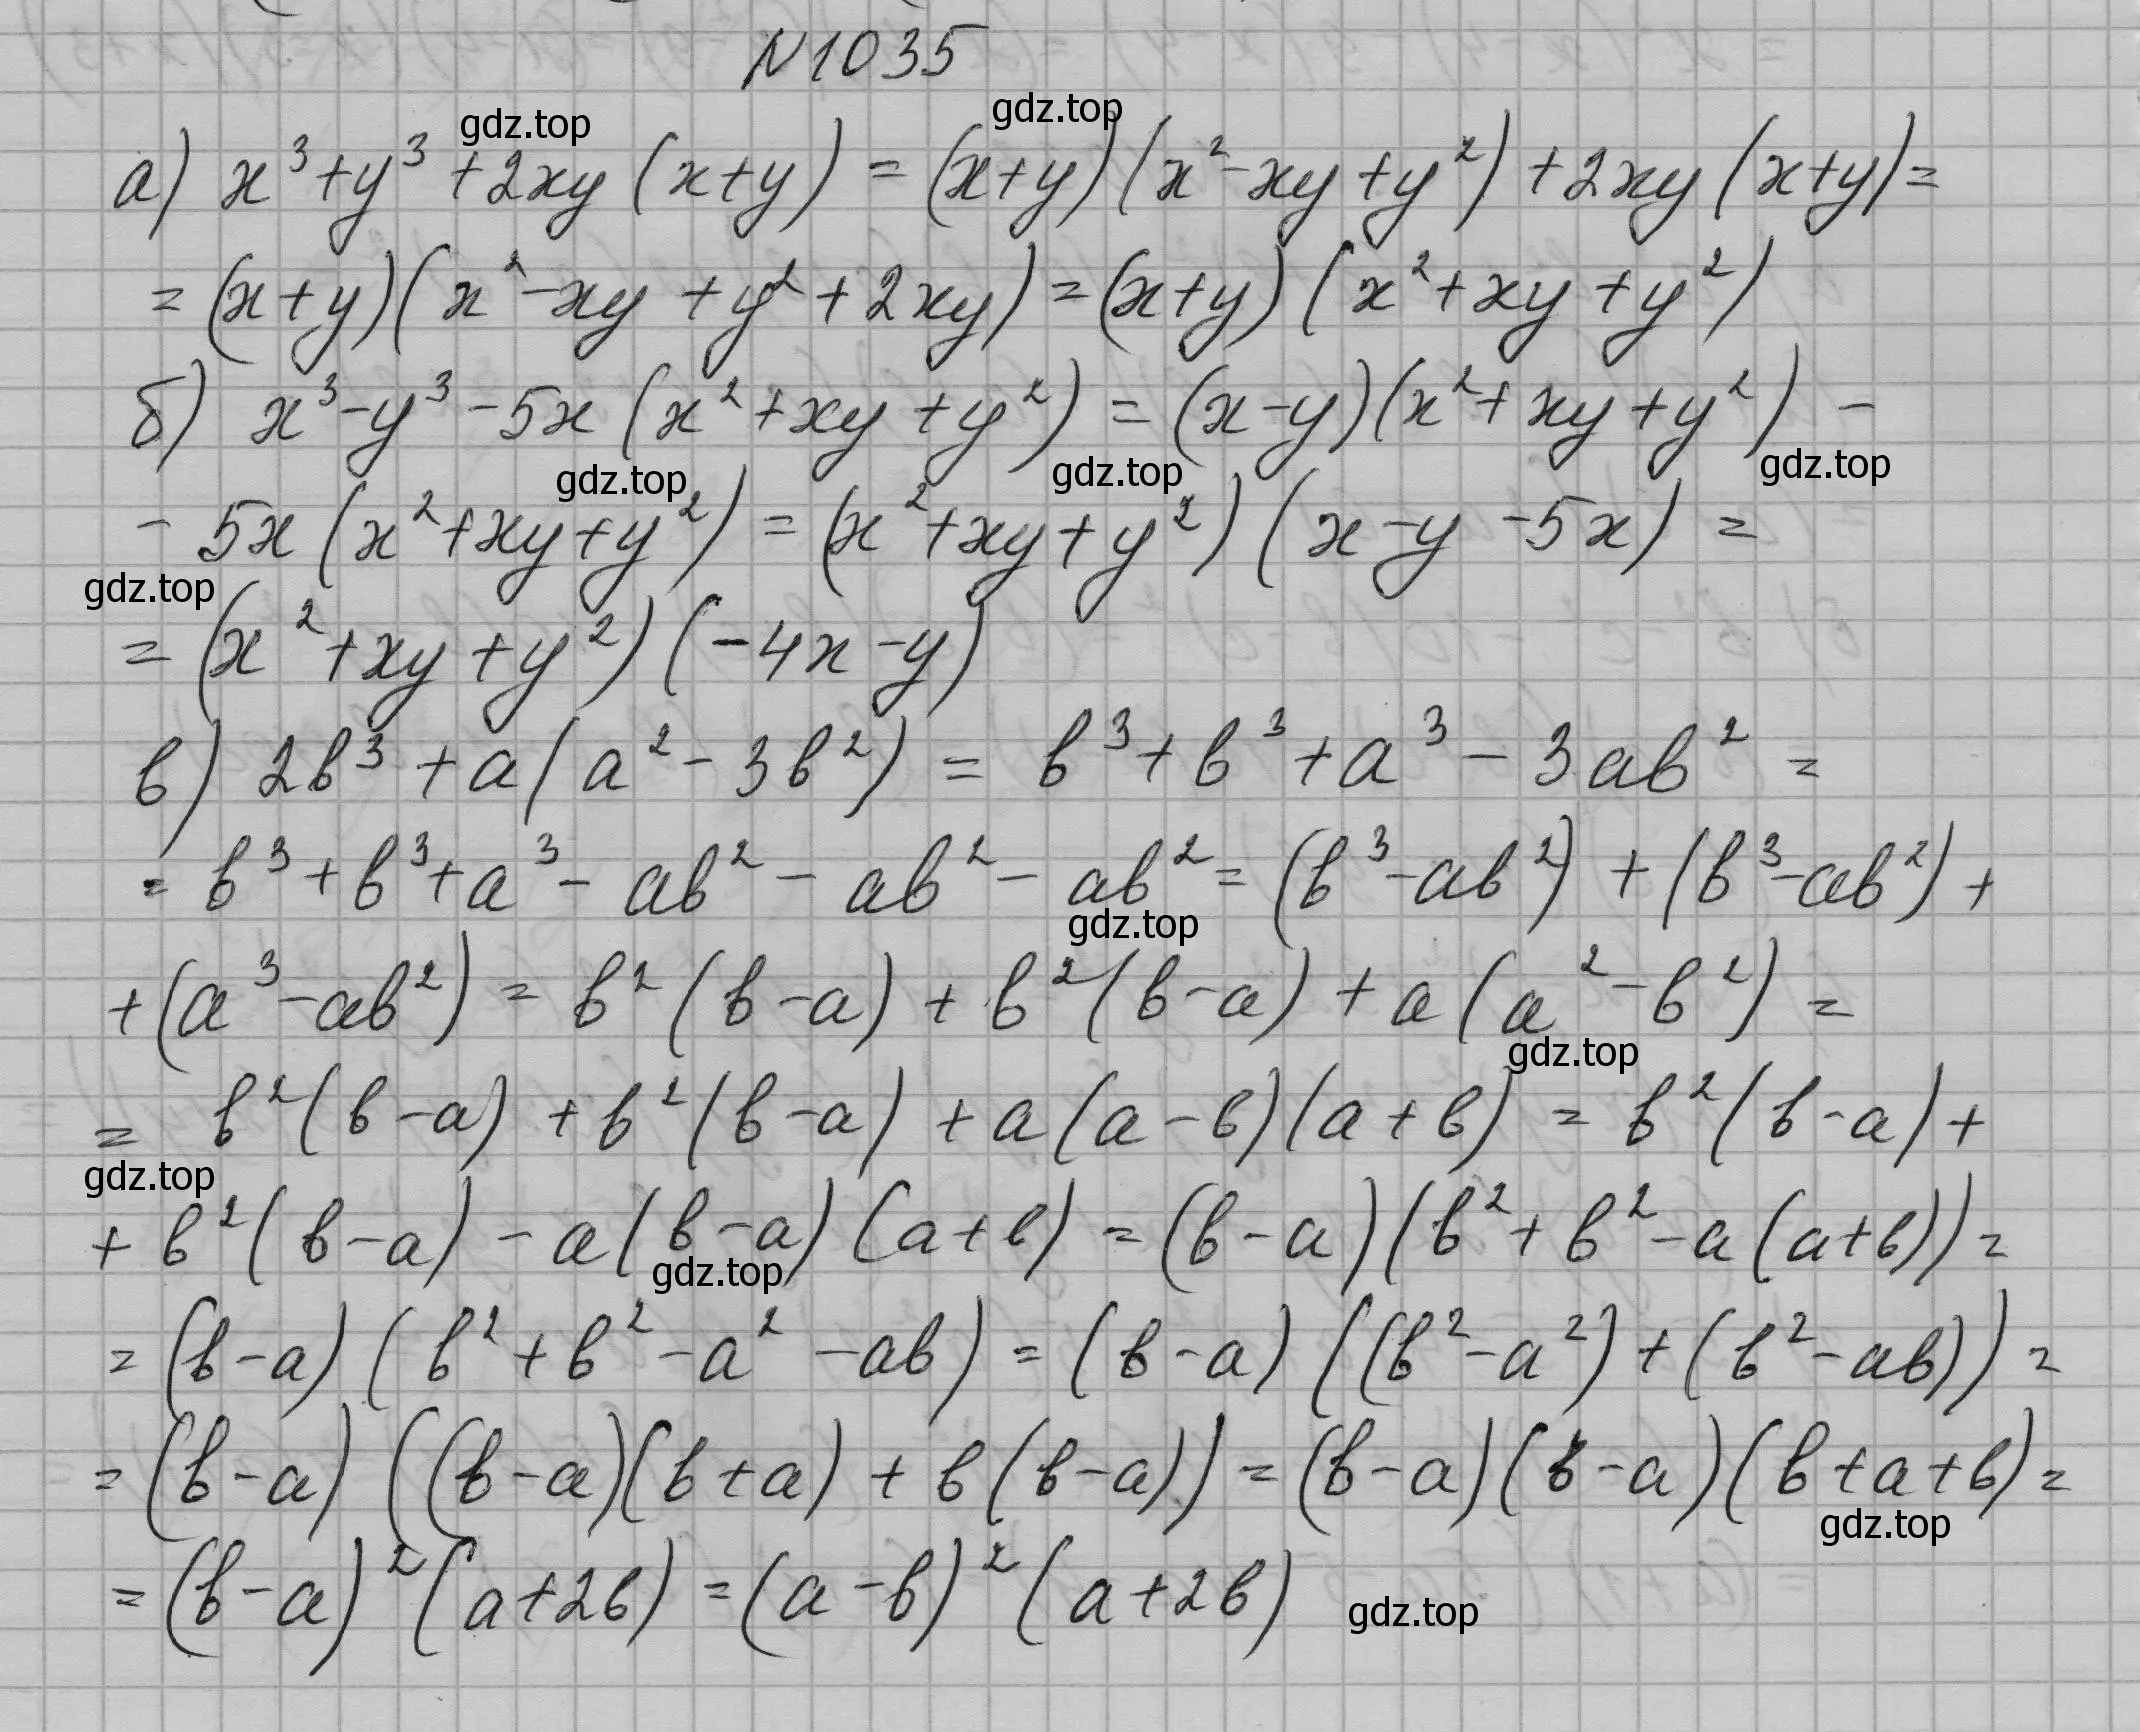 N1035
gdz.top gdz.top
а) x³+y³+2xy(x+y)=(x+y)(x²-xy+y²)+2xy(x+y)=
=(x+y)(x²-xy+y²+2xy)=(x+y)(x²+xy+y²)
б) x³-y³-5x(x²+xy+y²)=(x-y)(x²+xy+y²)-
gdz.top gdz.top gdz.top
-5x(x²+xy+y²)=(x²+xy+y²)(x-y-5x)=
gdz.top
=(x²+xy+y²)(-4x-y)
в) 2b³+a(a²-3b²)=b³+b³+a³-3ab²=
=b³+b³+a³-ab²-ab²-ab²=(b³-ab²)+(b³-ab²)+
gdz.top
+(a³-ab²)=b²(b-a)+b²(b-a)+a(a²-b²)=
gdz.top
=b²(b-a)+b²(b-a)+a(a-b)(a+b)=b²(b-a)+
gdz.top
+b²(b-a)-a(b-a)(a+b)=(b-a)(b²+b²-a(a+b))=
gdz.top
=(b-a)(b²+b²-a²-ab)=(b-a)((b²-a²)+(b²-ab))=
=(b-a)((b-a)(b+a)+b(b-a))=(b-a)(b-a)(b+a+b)=
gdz.top
=(b-a)²(a+2b)=(a-b)²(a+2b)
gdz.top